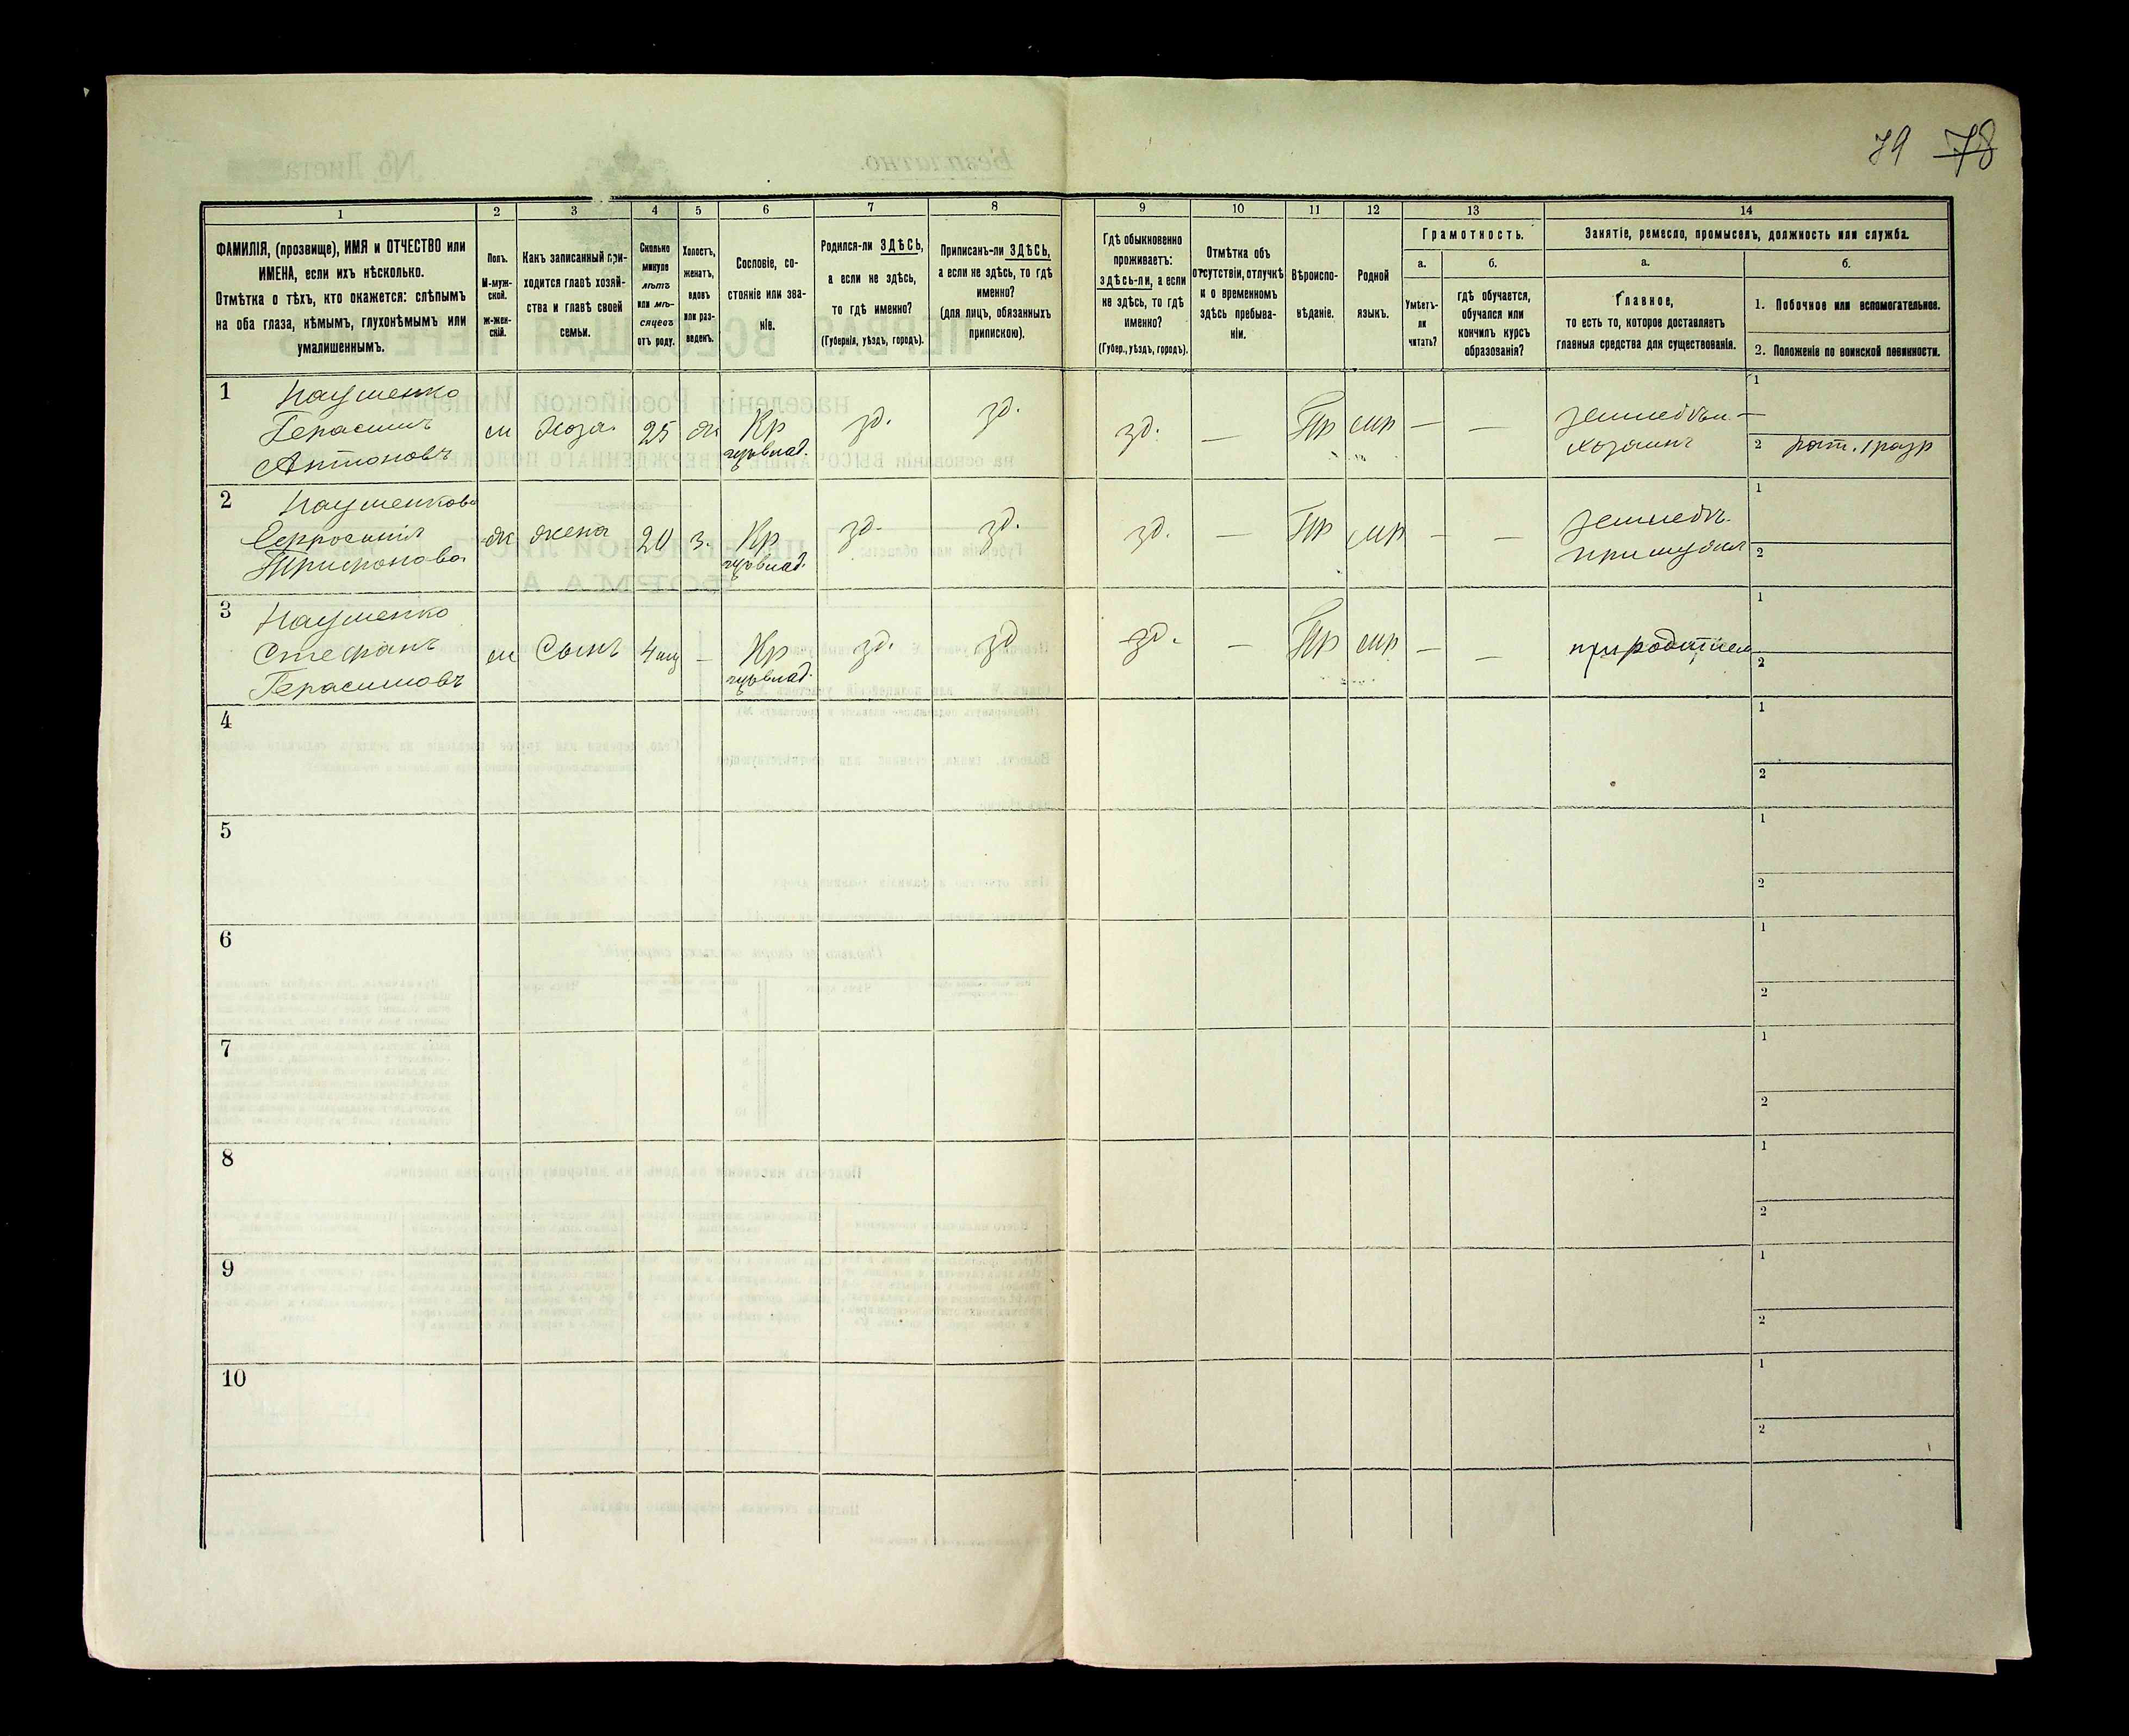 79 78
1
2
3
4
5
6
7
8
9
10
11
12
13
14
ФАМИЛІЯ, (прозвище), ИМЯ и ОТЧЕСТВО или
ИМЕНА, если ихъ нѣсколько.
Отмѣтка о тѣхъ, кто окажется: слѣпымъ
на оба глаза, нѣмымъ, глухонѣмымъ или
умалишеннымъ.
Полъ.
М-муж-
ской.
ж-жен-
скій.
Какъ записанный при-
ходится главѣ хозяй-
ства и главѣ своей
семьи.
Сколько
минуло
лѣтъ
или мѣ-
сяцевъ
отъ роду.
Холостъ,
женатъ,
вдовъ
или раз-
веденъ.
Сословіе, со-
стояніе или зва-
ніе.
Родился-ли ЗДѢСЬ,
а если не здѣсь,
то гдѣ именно?
(Губернія, уѣздъ, городъ).
Приписанъ-ли ЗДѢСЬ,
а если не здѣсь, то гдѣ
именно?
(для лицъ, обязанныхъ
припискою).
Гдѣ обыкновенно
проживаетъ:
здѣсь-ли, а если
не здѣсь, то гдѣ
именно?
(Губер., уѣздъ, городъ).
Отмѣтка объ
отсутствіи, отлучкѣ
и о временномъ
здѣсь пребыва-
ніи.
Вѣроиспо-
вѣданіе.
Родной
языкъ.
Грамотность.
а.
Умѣетъ-
ли
читать?
б.
гдѣ обучается,
обучался или
кончилъ курсъ
образованія?
Занятіе, ремесло, промыселъ, должность или служба.
а.
Главное,
то есть то, которое доставляетъ
главныя средства для существованія.
б.
1. Побочное или вспомогательное.
2. Положеніе по воинской повинности.
1
Науменко
Герасимъ
Антоновъ
м
Хозя.
25
ж
Кр
зд.
зд.
зд.
—
Пр
мр
—
—
хозяинъ
1
—
2 рат. 1 разр
2
Науменкова
Трифонова
ж
жена
20
з.
Кр
зд.
зд.
зд.
—
Пр
мр
—
—
1
2
3
Науменко
Стефанъ
Герасимовъ
м
Сынъ
—
Кр
зд.
зд
зд.
—
Пр
мр
—
—
1
2
4
1
2
5
1
2
6
1
2
7
1
2
8
1
2
9
1
2
10
1
2